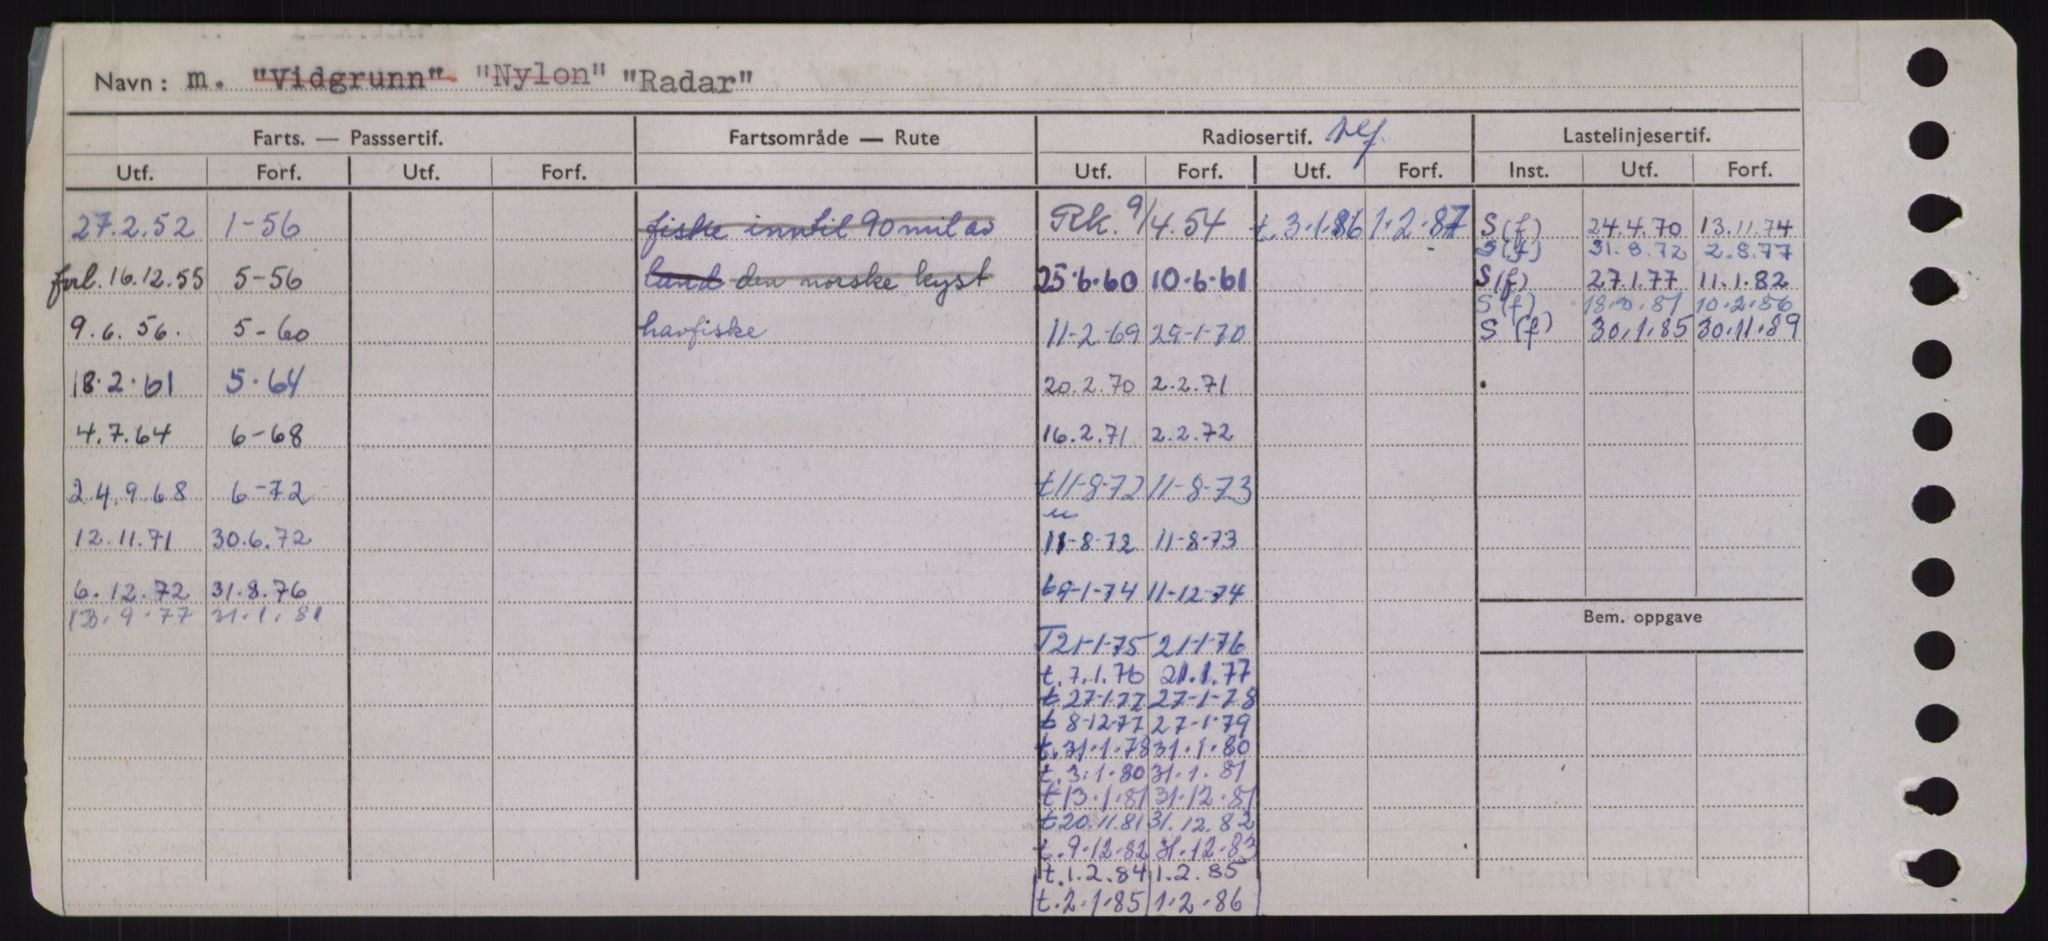 Navn: m. "Vidgrunn" "Nylon" "Radar"
Farts. — Passsertif. Fartsområde — Rute Radiosertif. Lastelinjesertif.
Utf. Forf. Utf. Forf. Utf. Forf. Utf. Forf. Inst. Utf. Forf.
27.2.52 1-56 fiske inntil 90 mil av Rk. 9/4.54 t.3.1.86 1.2.87 S(f) 24.4.70 13.11.74
S(f) 31.8.72 2.8.77
forl. 16.12.55 5-56 land den norske kyst 25.6.60 10.6.61 S(f) 27.1.77 11.1.82
S(f) 10.2.86
9.6.56. 5-60 havfiske 11-2-69 29-1-70 S(f) 30.1.85 30.11.89
18.2.61 5.64 20.2.70 2.2.71
4.7.64 6-68 16.2.71 2.2.72
24.9.68 6-72 t11-8-72 11-8-73
12.11.71 30.6.72 11-8-72 11-8-73
6.12.72 31.8.76 t9-1-74 11-12-74
13.9.77 31.1.81
Bem. oppgave
T21-1-75 21-1-76
t.7.1.76 21.1.77
t.27-1.77 27-1-78
t8-12-77 27-1-79
t.31.1.78 31.1.80
t.3.1.80 31.1.81
t13.1.81 31.12.81
t20.11.81 31.12.82
t.9.12.82 31.12.83
t.1.2.84 1.2.85
t.2.1.85 1.2.86